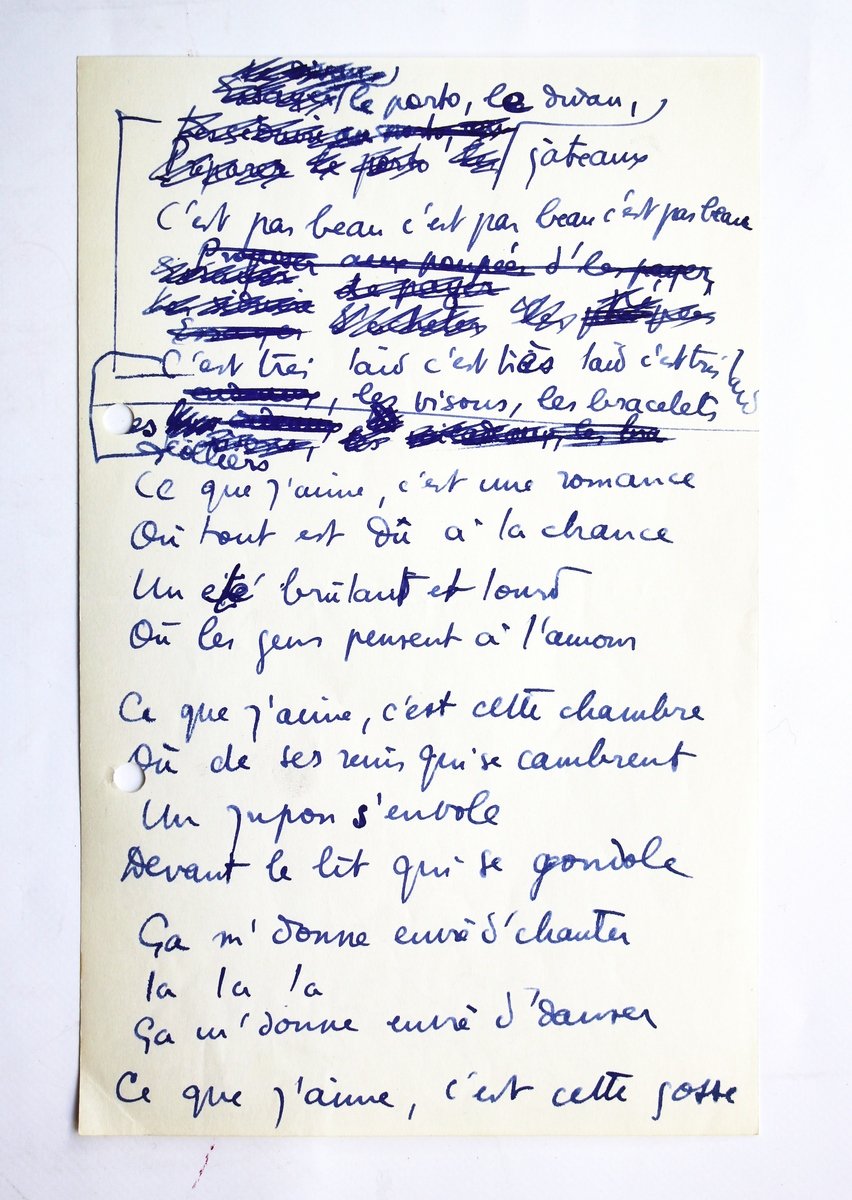 le porto, le divan,
gâteaux
C'est pas beau c'est pas beau c'est pas beau
Proposer aux poupées d'les payer,
C'est très laid c'est très laid c'est très laid
, les visons, les bracelets
les
colliers
Ce que j'aime, c'est une romance
Où tout est dû à la chance
Un été brûlant et lourd
Où les gens pensent à l'amour
Ce que j'aime, c'est cette chambre
Où de ses reins qui se cambrent
Un jupon s'envole
Devant le lit qui se gondole
Ça m'donne envie d'chanter
la la la
Ça m'donne envie d'danser
Ce que j'aime, c'est cette gosse